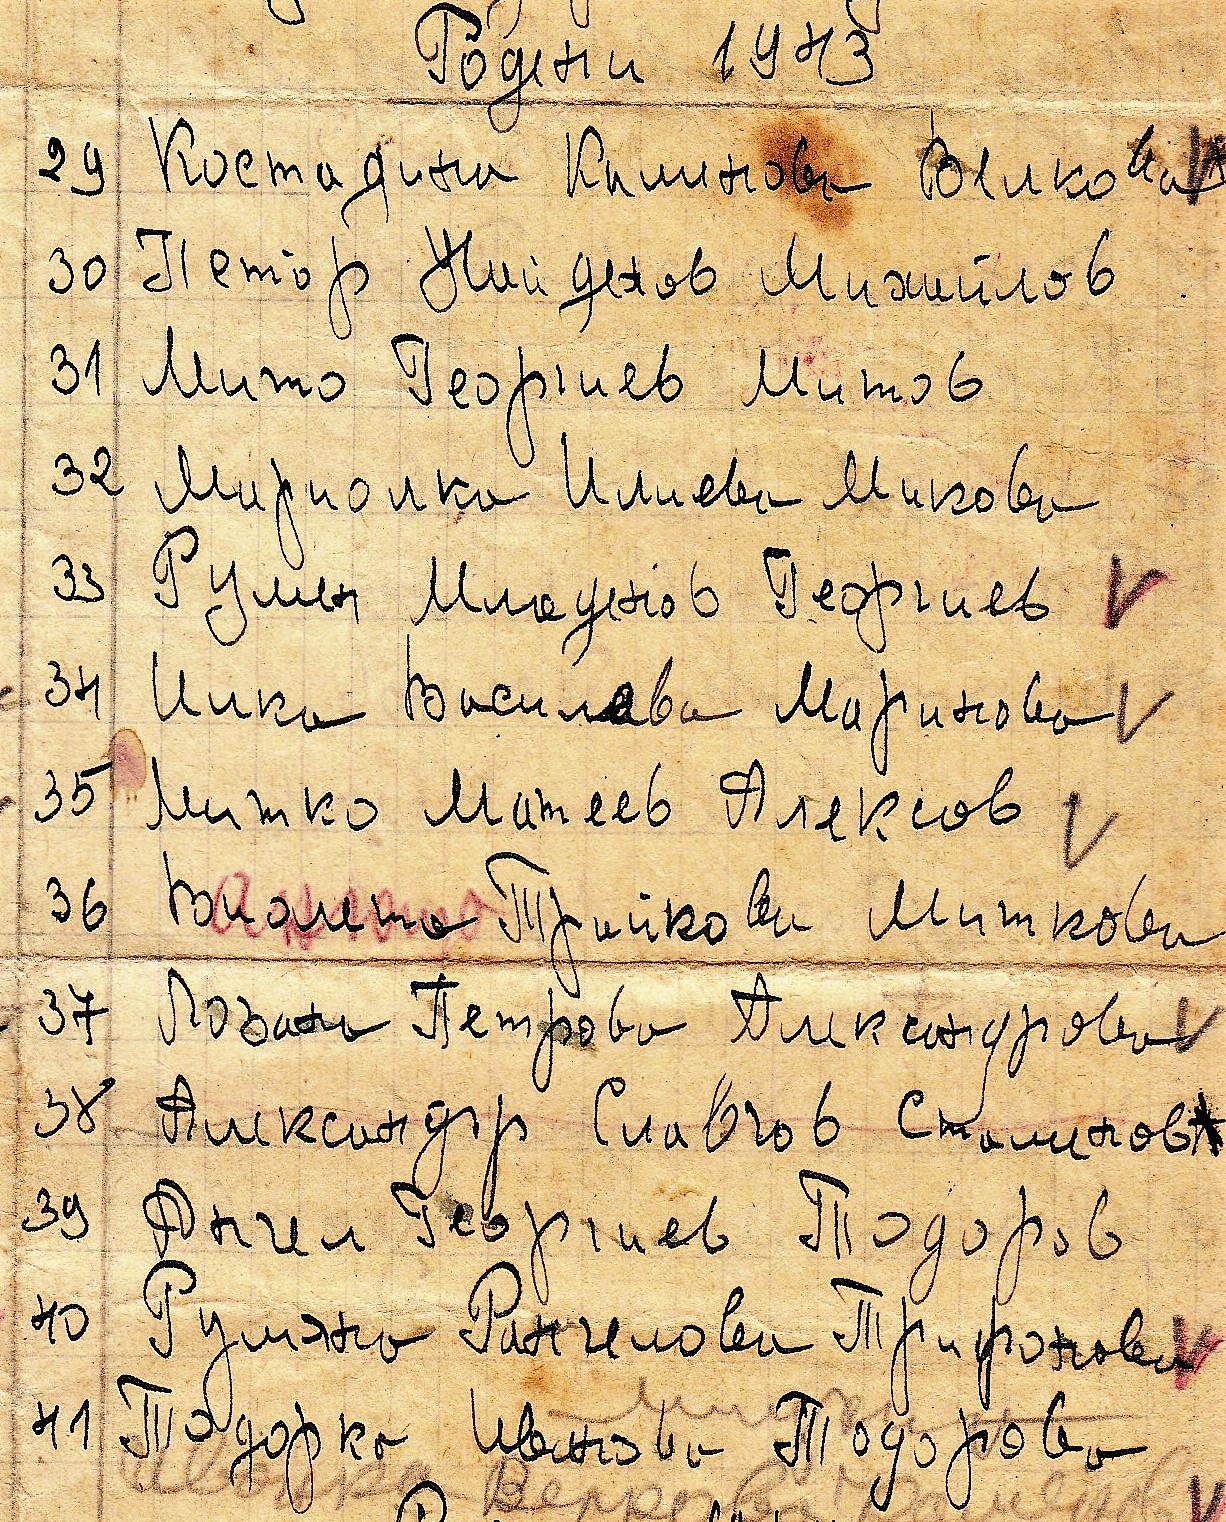 Родени 1943
29 Костадинка Калинова Велкова V
30 Петър Найденов Михайлов
31 Мито Георгиев Митов
32 Мариолка Илиева Микова
33 Румен Младенов Георгиев V
34 Цика Василева Маринова V
35 Митко Матеев Алексов V
36 Виолета Трайкова Миткова
37 Лозана Петрова Александрова V
38 Александър Славчов Сталинов
39 Ангел Георгиев Тодоров
40 Румяна Рангелова Трифонова V
41 Тодорка Иванова Тодорова